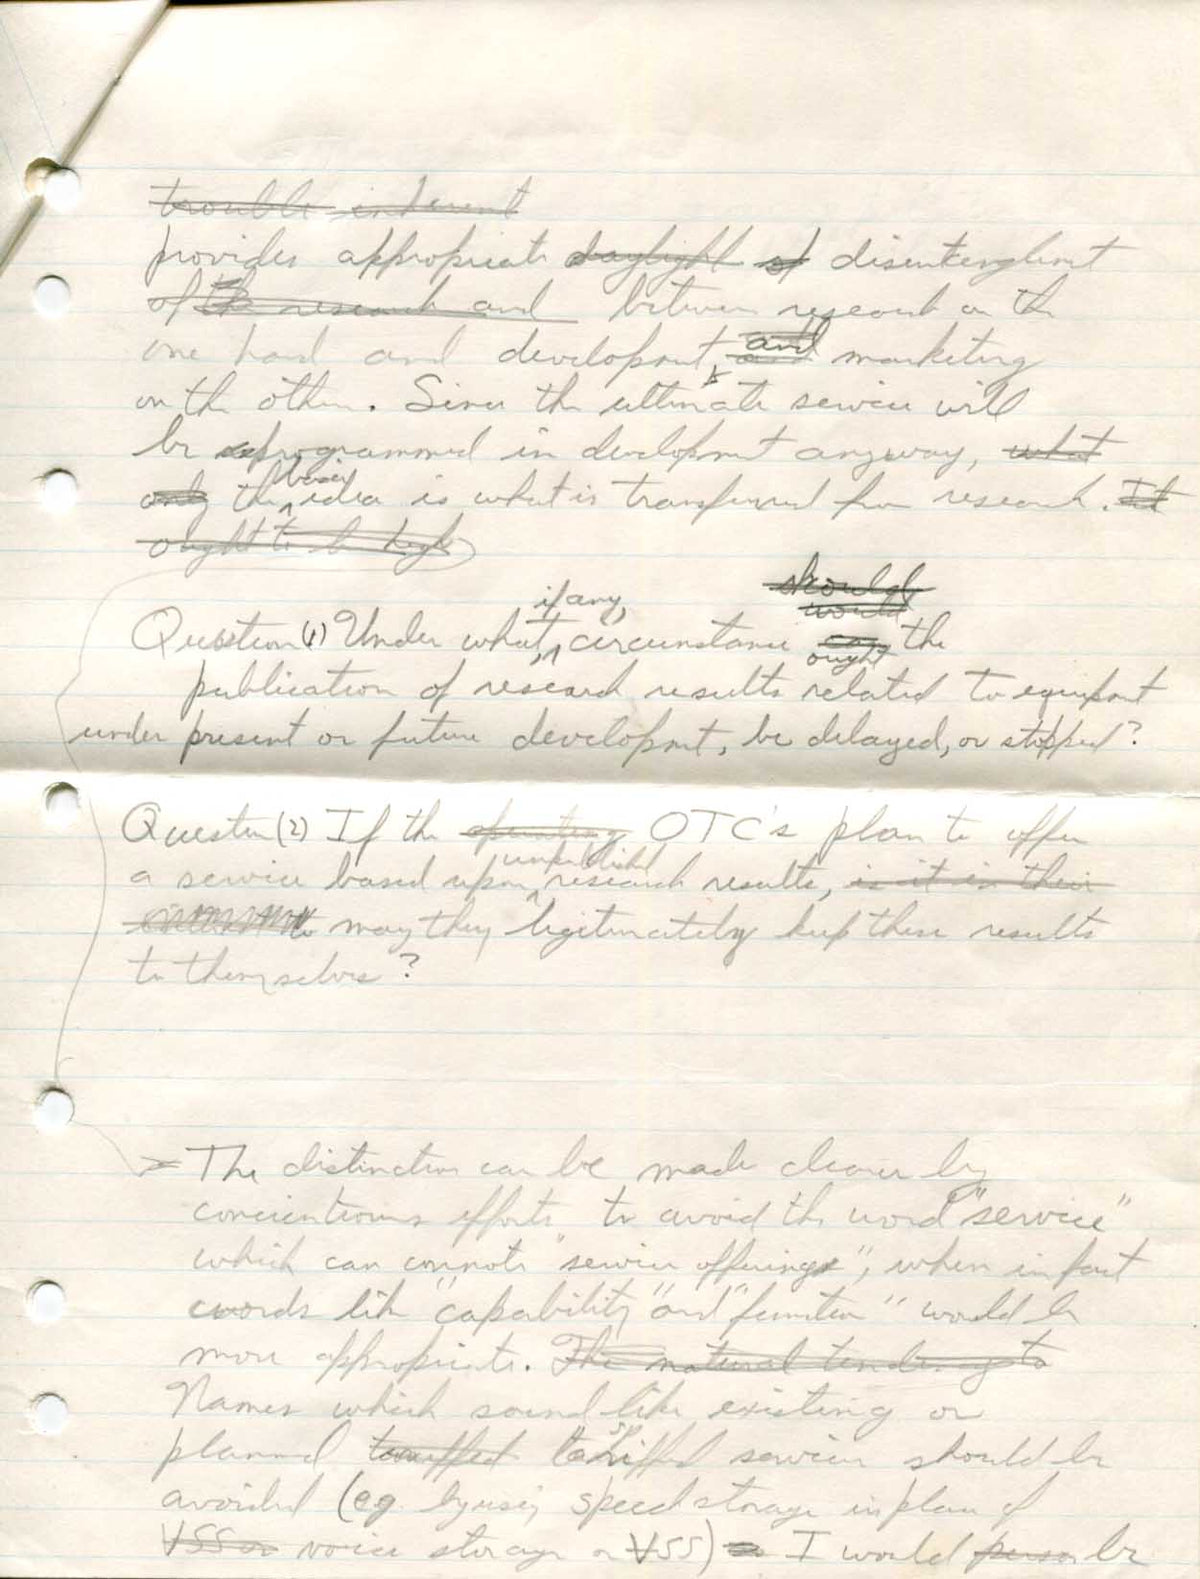 trouble inherent
provides appropriate daylight of disentanglement
of the research and between research on the
one hand and development, and marketing
on the other. Since the ultimate service will
be reprogrammed in development anyway, what
only the basic idea is what is transferred from research. It
ought to be high
Question (1) Under what, if any, circumstance should would ought the
publication of research results related to equipment
under present or future development, be delayed, or stopped?
Question (2) If the operating OTC's plan to offer
a service based upon unpublished research results, is it in their
to may they legitimately keep these results
to themselves?
The distinction can be made clearer by
concientious efforts to avoid the word "service"
which can connote "service offerings", when in fact
words like "capability" and "function" would be
more appropriate. The natural tendency to
Names which sound like existing or
planned tariffed services should be
avoided (eg. by using speech storage in place of
VSS or voice storage or VSS) I would be